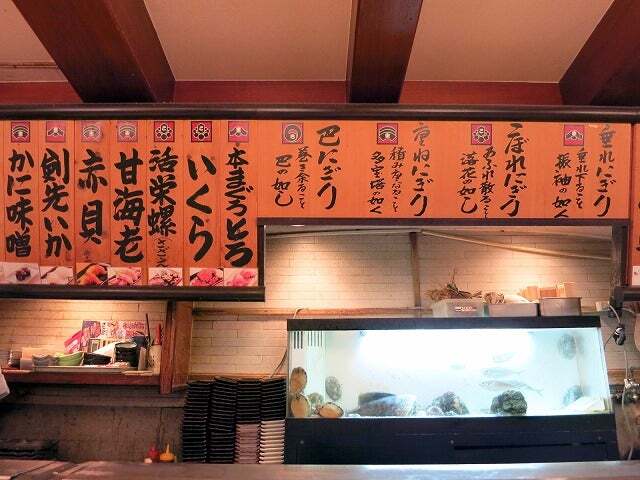 垂れにぎり
垂れ下ること
振袖の如く
こぼれにぎり
あふれ散ること
落花の如し
重ねにぎり
積みかさなること
多宝塔の如く
巴にぎり
巻き来ること
巴の如し
本まぐろとろ
いくら
活栄螺
さざえ
甘海老
赤貝
剣先いか
かに味噌